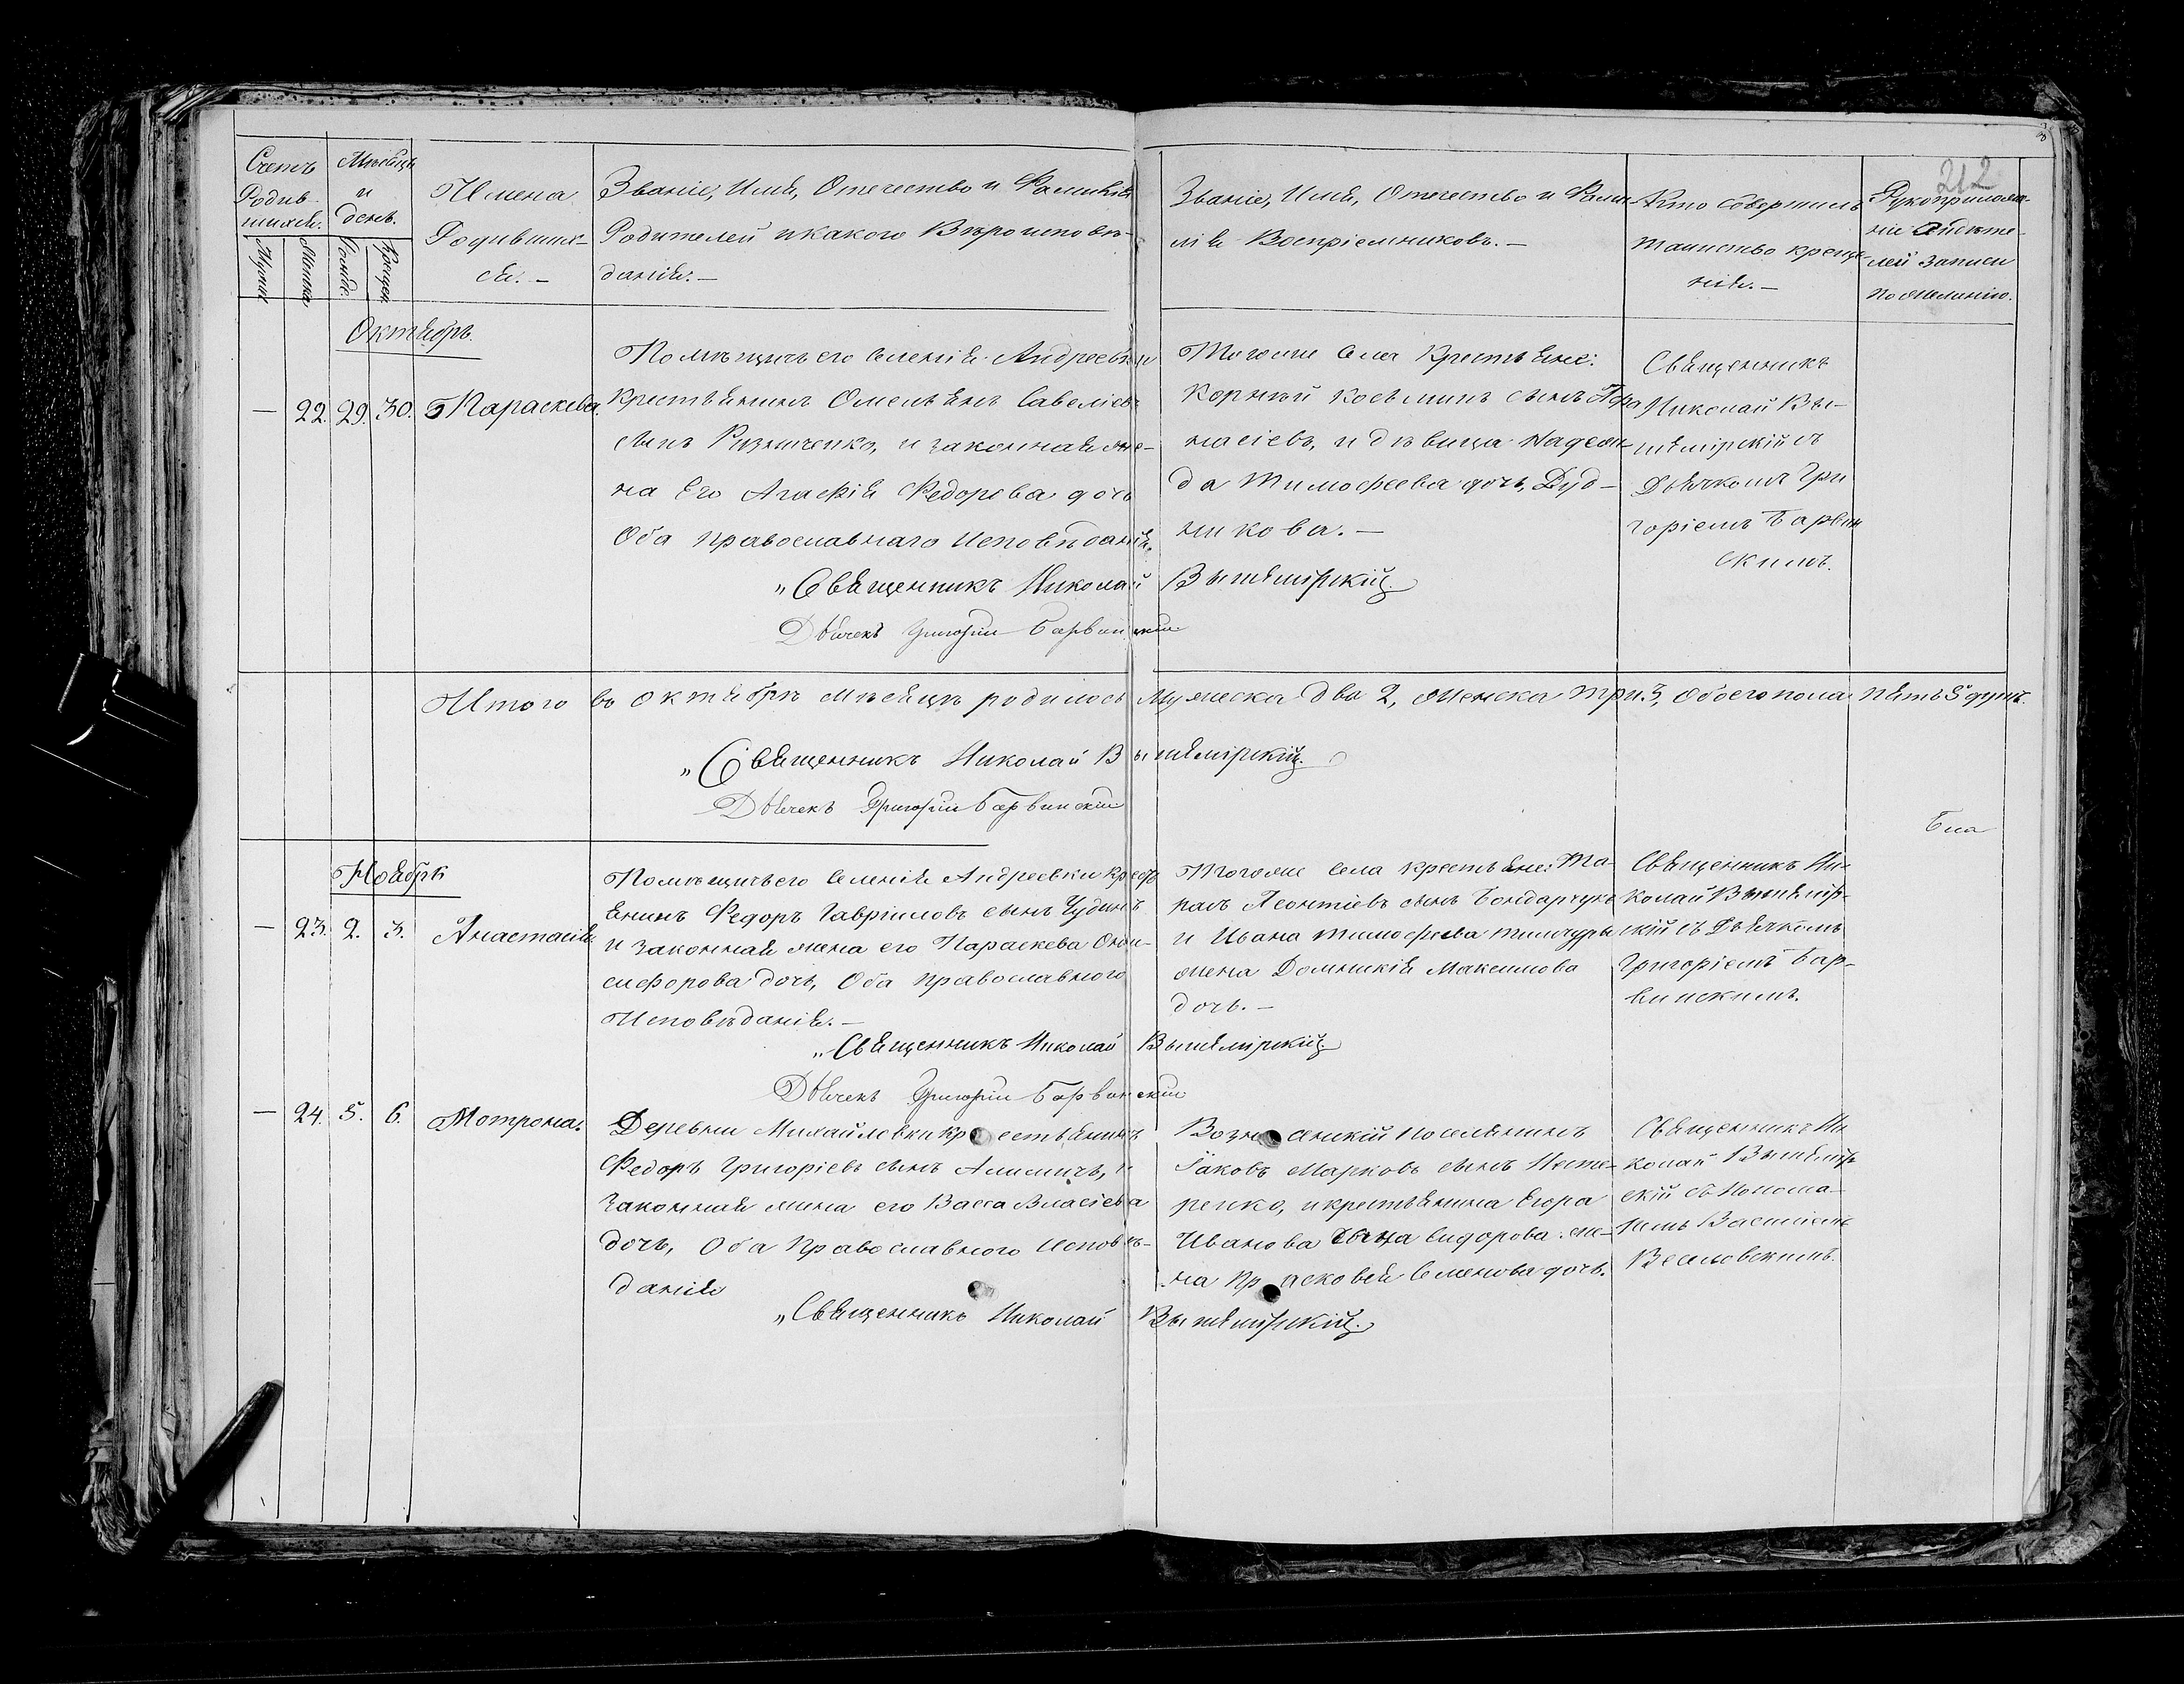 212
Счетъ
Родив-
шихся.
Мѣсяцъ
и
день.
Имена
Родивших-
ся. —
Званіе, Имя, Отечество и Фамилія
Родителей и какого Вѣроисповѣ-
данія. —
Званіе, Имя, Отечество и Фами-
лія Воспріемниковъ. —
Кто совершилъ
таинство креще-
нія. —
Рукоприложе-
ніе свидѣте-
лей записи
по желанію.
Мужска
Женска
Рожде.
Крещен.
Октябрь.
— 22. 29. 30. Параскева.
Помѣщичьего селенія Андреевки
Крестьянинъ Омельянъ Савеліевъ
сынъ Кузниченко, и законная же-
на Его Агафія Федорова дочь
Оба православнаго Исповѣданія.
Тогоже Села Крестьяне:
Корній Косьминъ сынъ Афа
насіевъ, и дѣвица Надеж-
да Тимофеева дочь, Дуд-
никова. —
Священникъ
Николай Вы-
шемірскій съ
Дьячкомъ Гри
горіемъ Барвин
скимъ.
„Священникъ Николай Вышемірскій.
Дьячекъ Григорій Барвинскій
Итого въ октябрѣ мѣсяцѣ родилось Мужеска два 2, Женска три 3, Обоего пола пять 5 душъ.
„Священникъ Николай Вышемірскій.
Дьячекъ Григорій Барвинскій
Ноябрь
— 23. 2. 3. Анастасія.
Помѣщичьего селенія Андреевки Крест
янинъ Федоръ Гавріиловъ сынъ Чудинъ
и законная жена его Параскева Они-
сифорова дочь, Оба православного
Исповѣданія. —
Тогоже села крестьяне: Та-
расъ Леонтіевъ сынъ Бондарчукъ
и Ивана Тимофеева
жена Домникія Максимова
дочь. —
Священникъ Ни-
колай Вышемір-
скій съ Дьячкомъ
Григоріемъ Бар-
винскимъ.
„Священникъ Николай Вышемірскій.
Дьячекъ Григорій Барвинскій
— 24. 5. 6. Мотрона.
Деревни Михайловки Крестьянинъ
Федоръ Григоріевъ сынъ и
Законная жена его Васса Власіева
дочь, Оба Православного Исповѣ-
данія
Вознесенскій поселянинъ
Іаковъ Марковъ сынъ Несте-
ренко, и крестьянина Егора
Иванова сына Сидорова же-
на Прасковія Семенова дочь.
Священникъ Ни
колай Вышемір
скій съ Понома-
ремъ Василіемъ
„Священникъ Николай Вышемірскій.